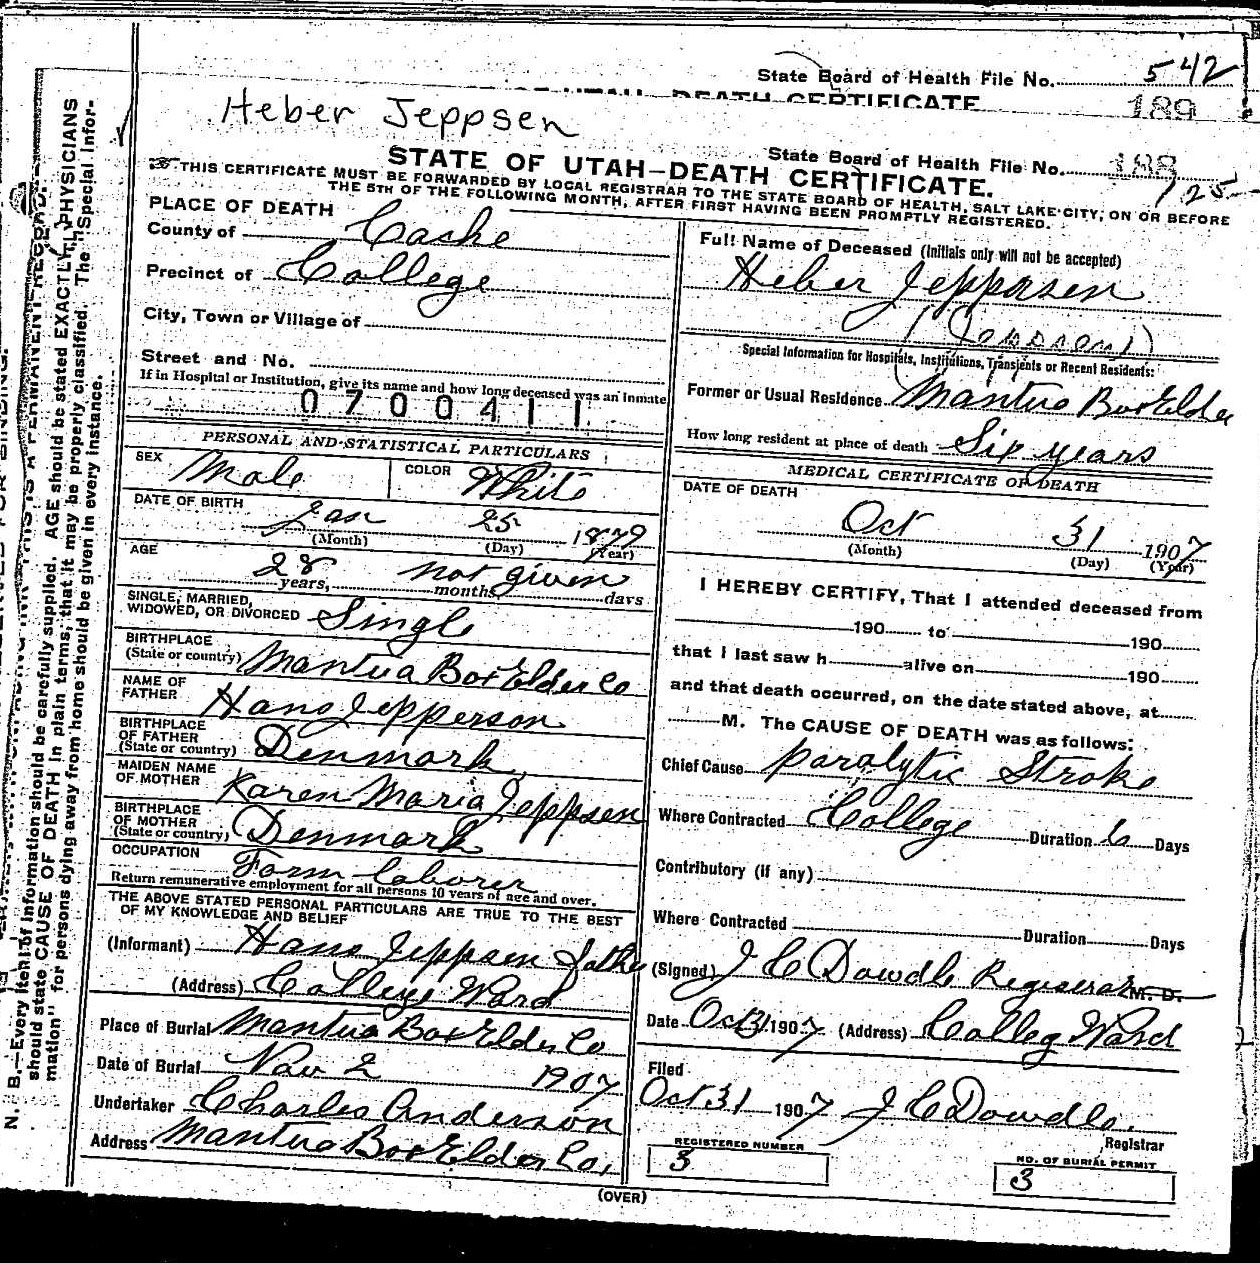 State Board of Health File No. 542
OF UTAH DEATH CERTIFICATE 189
Heber Jeppsen
State Board of Health File No. 188
STATE OF UTAH—DEATH CERTIFICATE. 125
THIS CERTIFICATE MUST BE FORWARDED BY LOCAL REGISTRAR TO THE STATE BOARD OF HEALTH, SALT LAKE CITY, ON OR BEFORE
THE 5TH OF THE FOLLOWING MONTH, AFTER FIRST HAVING BEEN PROMPTLY REGISTERED.
PLACE OF DEATH
County of Cache
Precinct of College
City, Town or Village of
Street and No.
If in Hospital or Institution, give its name and how long deceased was an inmate
0700411
PERSONAL AND STATISTICAL PARTICULARS
SEX Male COLOR White
DATE OF BIRTH
Jan 25 1879
(Month) (Day) (Year)
AGE
28 years, not given months days
SINGLE, MARRIED,
WIDOWED, OR DIVORCED Single
BIRTHPLACE
(State or country) Mantua Box Elder Co
NAME OF
FATHER Hans Jepperson
BIRTHPLACE
OF FATHER
(State or country) Denmark
MAIDEN NAME
OF MOTHER Karen Maria Jeppsen
BIRTHPLACE
OF MOTHER
(State or country) Denmark
OCCUPATION Farm laborer
Return remunerative employment for all persons 10 years of age and over.
THE ABOVE STATED PERSONAL PARTICULARS ARE TRUE TO THE BEST
OF MY KNOWLEDGE AND BELIEF
(Informant) Hans Jeppsen father
(Address) College Ward
Place of Burial Mantua Box Elder Co
Date of Burial Nov 2 1907
Undertaker Charles Anderson
Address Mantua Box Elder Co,
Full Name of Deceased (Initials only will not be accepted)
Heber Jepprsen
(Jeppsen)
Special Information for Hospitals, Institutions, Transients or Recent Residents:
Former or Usual Residence Mantua Box Elder
How long resident at place of death Six years
MEDICAL CERTIFICATE OF DEATH
DATE OF DEATH
Oct 31 1907
(Month) (Day) (Year)
I HEREBY CERTIFY, That I attended deceased from
190 to 190
that I last saw h alive on 190
and that death occurred, on the date stated above, at
M. The CAUSE OF DEATH was as follows:
Chief Cause paralytic Stroke
Where Contracted College Duration 6 Days
Contributory (if any)
Where Contracted Duration Days
(Signed) J C Dowdle Regiserar M. D.
Date Oct 31 1907 (Address) Colleg Ward
Filed
Oct 31 1907 J C Dowdle.
Registrar
REGISTERED NUMBER
3
NO. OF BURIAL PERMIT
3
(OVER)
N. B.—Every item of information should be carefully supplied. AGE should be stated EXACTLY. PHYSICIANS
should state CAUSE OF DEATH in plain terms, that it may be properly classified. The "Special Infor-
mation" for persons dying away from home should be given in every instance.